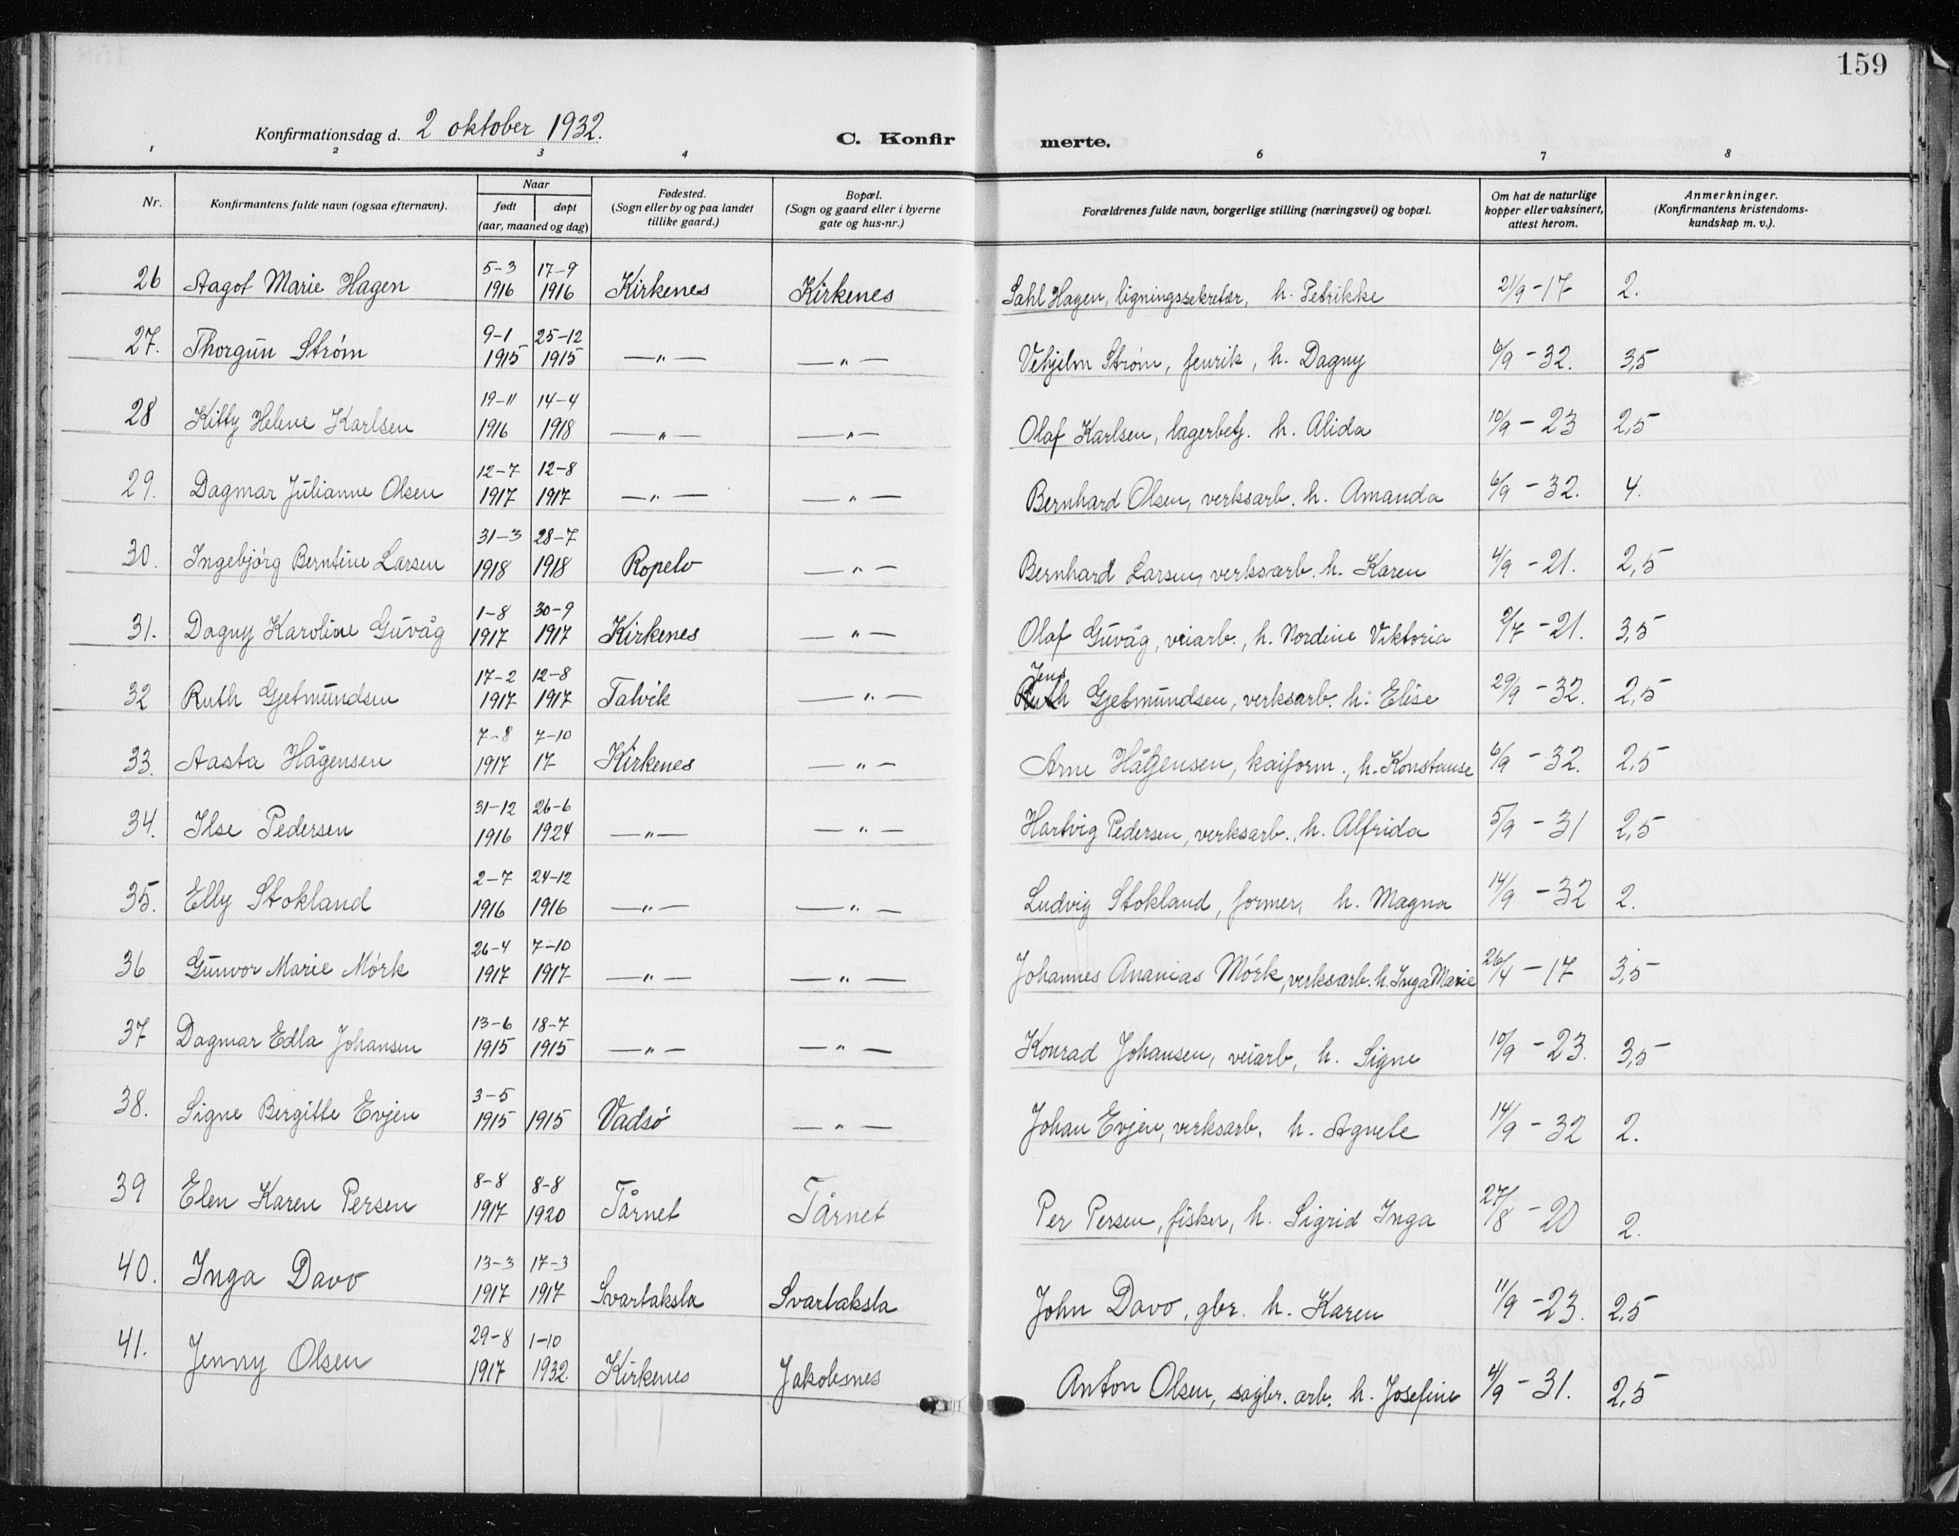 159
Konfirmationsdag d. 2 oktober 1932.
C. Konfir merte.
1 2 3 4 6 7 8
Nr. Konfirmantens fulde navn (ogsaa efternavn). Naar født døpt (aar, maaned og dag) Fødested. (Sogn eller by og paa landet tillike gaard.) Bopæl. (Sogn og gaard eller i byerne gate og hus-nr.) Forældrenes fulde navn, borgerlige stilling (næringsvei) og bopæl. Om hat de naturlige kopper eller vaksinert, attest herom. Anmerkninger. (Konfirmantens kristendoms-kundskap m. v.).
26 Aagot Marie Hagen 5-3 1916 17-9 1916 Kirkenes Kirkenes Sahl Hagen, ligningssekretær, h. Petrikke 21/9-17 2.
27. Thorgun Strøm 9-1 1915 25-12 1915 —"— —"— Vehjelm Strøm, fenrik, h. Dagny 6/9-32. 3,5
28 Kitty Helene Karlsen 19-11 1916 14-4 1918 —"— —"— Olaf Karlsen, lagerbetj. h. Alida 10/9-23 2,5
29. Dagmar Julianne Olsen 12-7 1917 12-8 1917 —"— —"— Bernhard Olsen, verksarb. h. Amanda 6/9-32. 4.
30. Ingebjórg Berntine Larsen 31-3 1918 28-7 1918 Ropelv —"— Bernhard Larsen, verksarb. h. Karen 4/9-21. 2,5
31. Dagny Karoline Guvåg 1-8 1917 30-9 1917 Kirkenes —"— Olaf Guvåg, veiarb., h. Nordine Viktoria 2/7-21. 3,5
32 Ruth Gjetmundsen 17-2 1917 12-8 1917 Talvik —"— Jens Gjetmundsen, verksarb. h: Elise 29/9-32. 2,5
33. Aasta Hågensen 7-8 1917 7-10 17 Kirkenes —"— Arne Hågensen, kaiform., h. Konstanse 6/9-32. 2,5
34. Ilse Pedersen 31-12 1916 26-6 1924 —"— —"— Hartvig Pedersen, verksarb., h. Alfrida 5/9-31 2,5
35. Elly Stokland 2-7 1916 24-12 1916 —"— —"— Ludvig Stokland, former, h. Magna 14/9-32 2.
36 Gunvor Marie Mórk 26-4 1917 7-10 1917 —"— —"— Johannes Ananias Mórk, verksarb. h. Inga Marie 26/4-17 3,5
37 Dagmar Edla Johansen 13-6 1915 18-7 1915 —"— —"— Konrad Johansen, veiarb, h. Signe 10/9-23. 3,5
38. Signe Bergitte Evjen 3-5 1915 1915 Vadsó —"— Johan Evjen, verksarb. h. Agnete 14/9-32 2.
39 Elen Karen Persen 8-8 1917 8-8 1920 Tårnet Tårnet Per Persen, fisker, h. Sigrid Inga 27/8-20 2.
40. Inga Davo 13-3 1917 17-3 1917 Svartaksla Svartaksla John Davo, gbr. h. Karen 11/9-23. 2,5
41. Jenny Olsen 29-8 1917 1-10 1932. Kirkenes Jakobsnes Anton Olsen, sagbr. arb. h. Josefine 4/9-31. 2,5